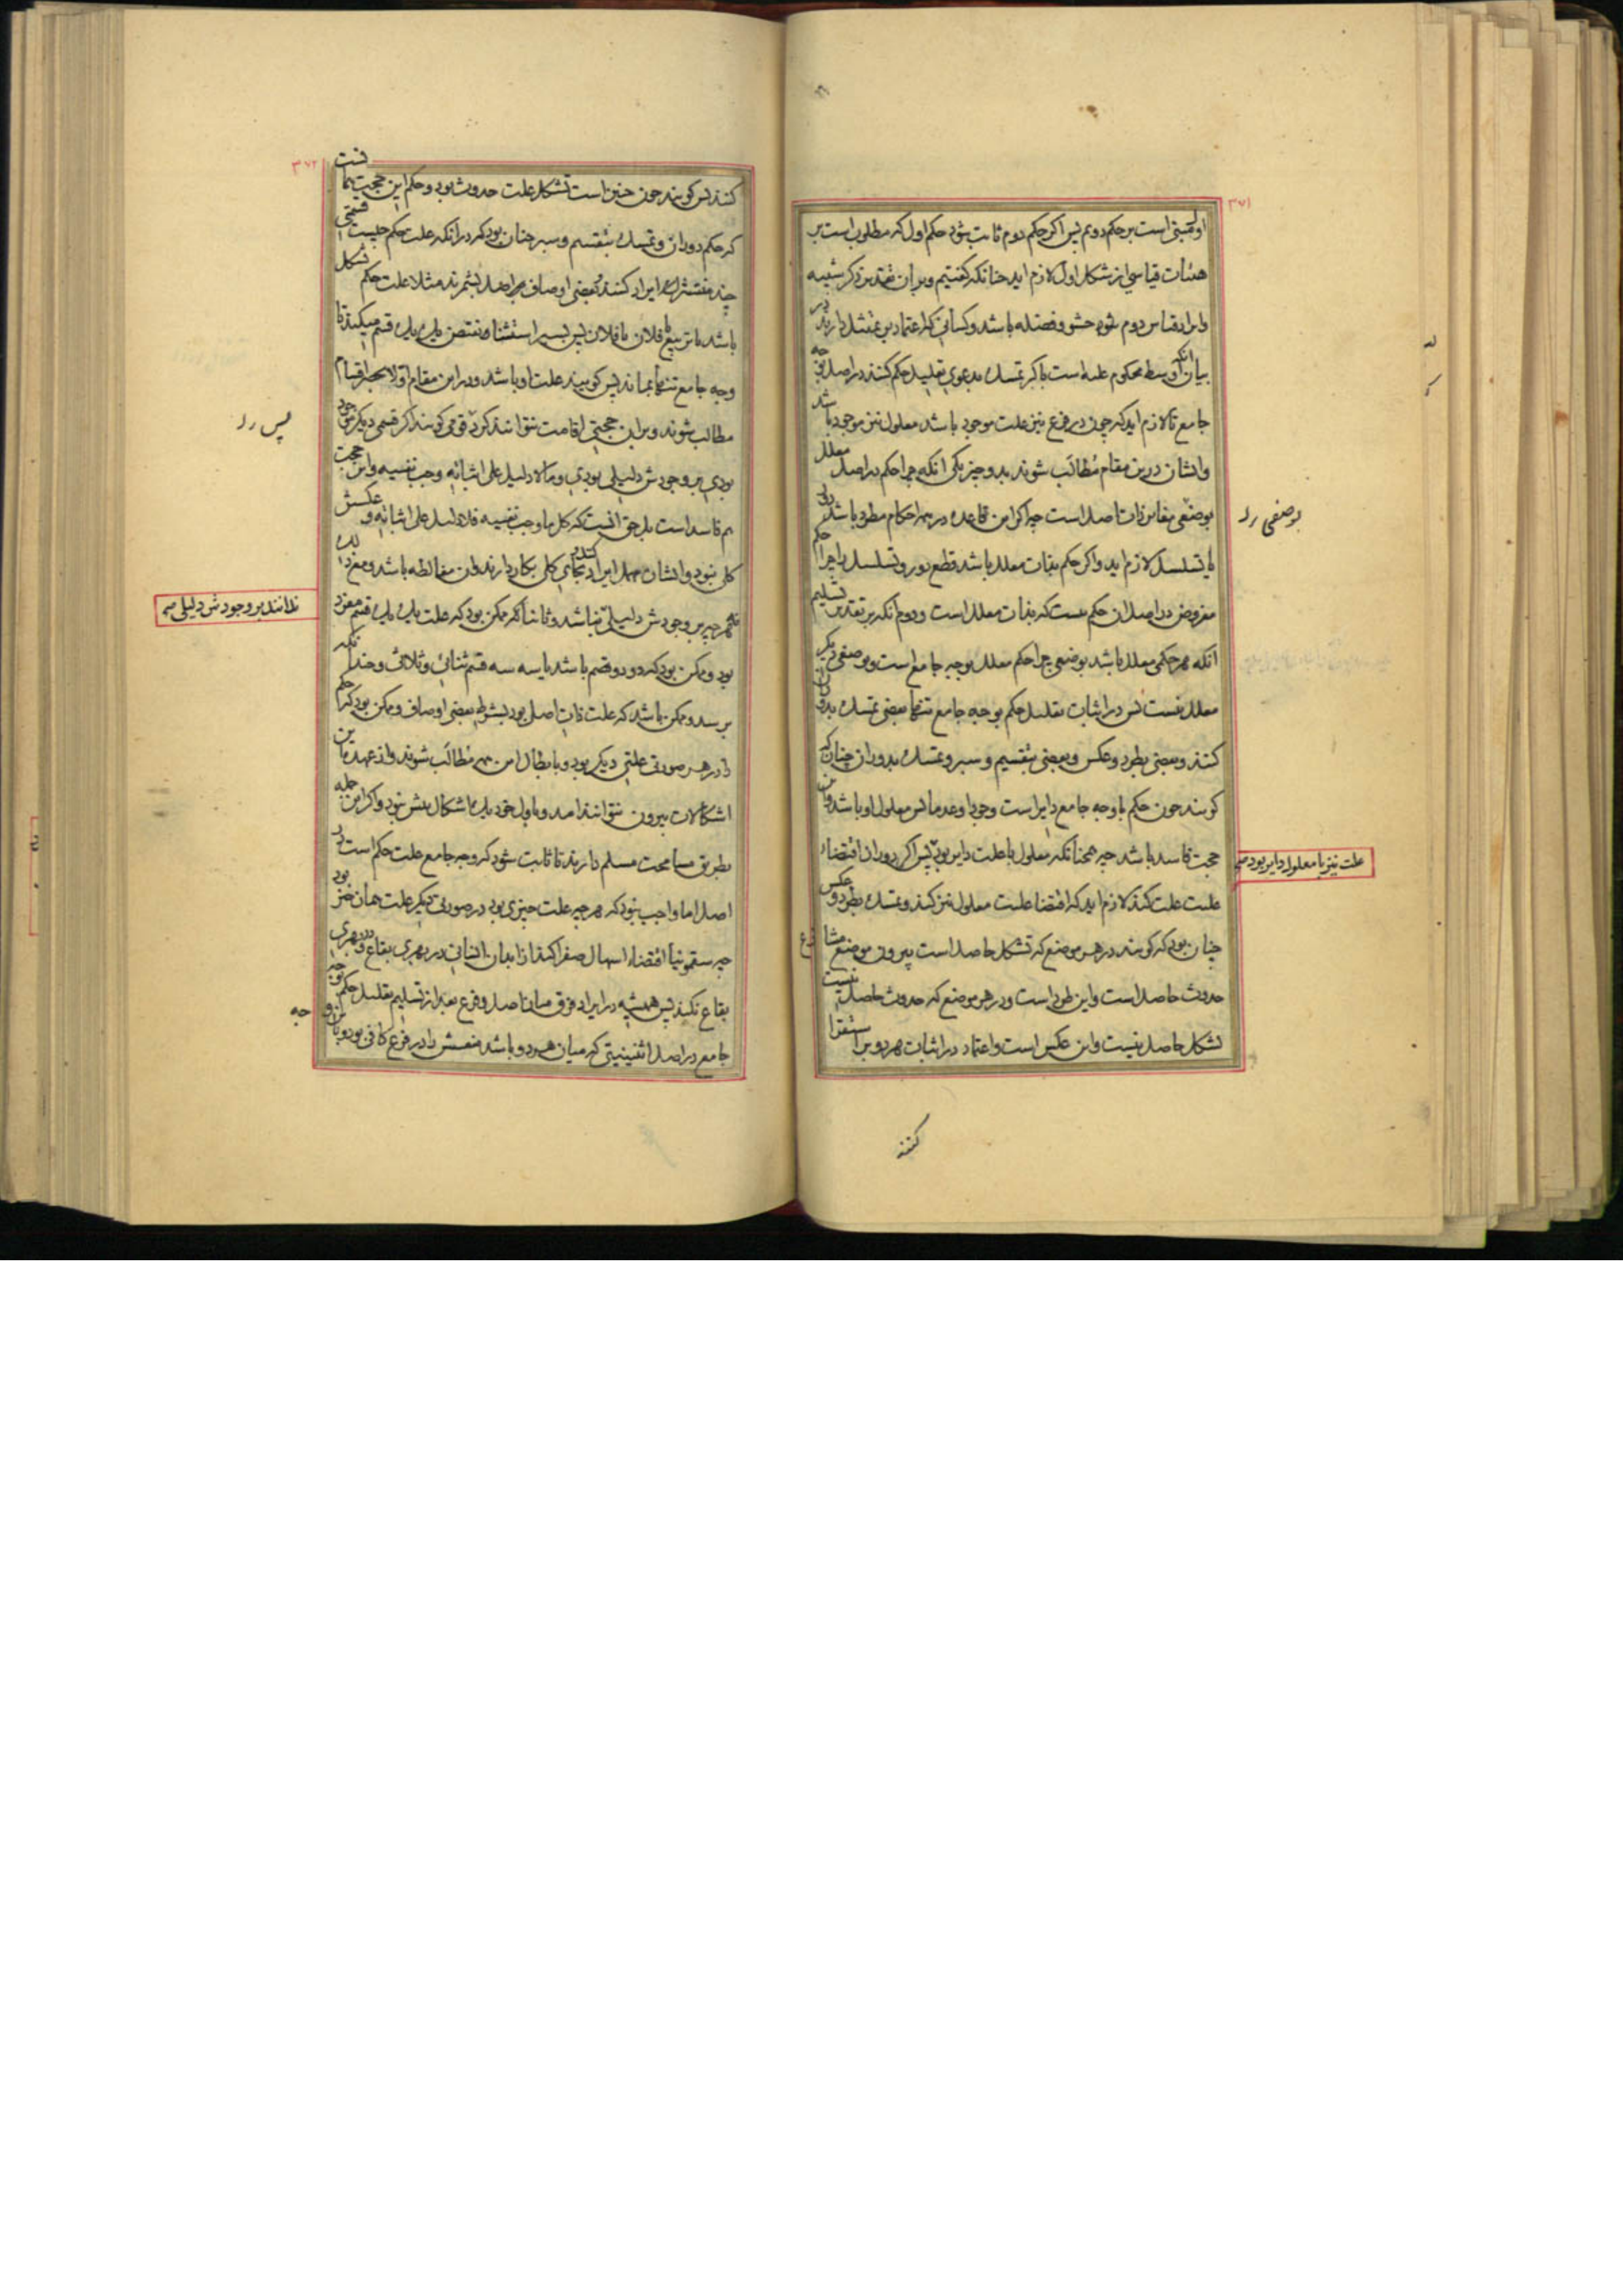 ۳۷۱
او مبتنی است بر حکم دوم پس اگر حکم دوم ثابت شود حکم اول که مطلوب است بر
هیئات قیاسی از شکل اول لازم اید چنانکه گفتیم و بران تقدیر ذکر شبیه
و ایراد قیاس دوم شود حشو و فضله باشد و کسانی که اعتماد بر تمثیل دارند در
بیان آنکه اوسط محکوم علیه است باکبر تمسک بدعوی تعلیل حکم کنند در اصل بوجه
جامع تا لازم اید که چون در فرع نیز علت موجود باشد معلول نیز موجود باشد
و ایشان درین مقام مُطالَب شوند بدو چیز یکی انکه چرا حکم در اصل معلل
بوصفی مغایر ذات اصل است چه اگر این قاعده در همه احکام مطرد باشد دور
یا تسلسل لازم اید و اگر حکم بذات معلل باشد قطع دور و تسلسل را چرا حکم
مفروض در اصل ان حکم نیست که بذات معلل است و دوم انکه بر تقدیر تسلیم
انکه هر حکمی معلل باشد بوصفی چرا حکم معلل بوجه جامع است و بوصفی دیگر
معلل نیست پس در اثبات تعلیل حکم بوجه جامع تنها بعضی تمسک بدوران
کنند و بعضی بطرد و عکس و بعضی بتقسیم و سبر و تمسک بدوران چنان که
گویند چون حکم با وجه جامع دایر است وجودا و عدما پس معلول او باشد و این
حجت فاسد باشد چه همچنانکه معلول با علت دایر بود پس اگر دوران اقتضاء
علت نیز با معلول دایر بود صح
علیت علت کند لازم اید که اقتضا علیت معلول نیز کند و تمسک بطرد و عکس
چنان بود که گویند در هر موضع که تشکل حاصل است بیرون موضع مشا
حدوث حاصل است و این طرد است و در هر موضع که حدوث حاصل نیست
تشکل حاصل نیست و این عکس است و اعتماد در اثبات هر دو بر استقرا
بوصفی را
کنند
۳۷۲
کنند پس گویند چون چنین است تشکل علت حدوث بود و حکم این حجت همانست
که حکم دوران و تمسک بتقسیم و سبر چنان بود که در انکه علت حکم چیست قسمتی
چند منتشر ایراد کنند و بعضی اوصاف اصل بشمرند مثلا علت حکم تشکل
باشد یا تربیع یا فلان یا فلان پس بسبر استثناء نقیض یک یک قسم میکنند تا
وجه جامع تنها بماند پس گویند علت او باشد و در این مقام اولا بحصر اقسام
مطالب شوند و بر این حجتی اقامت نتوانند کرد قومی گویند اگر قسمی دیگر موجود
بودی بر وجودش دلیلی بودی و ما لا دلیل علی اثباته وجب نفیه و این حجت
هم فاسد است بل حق انست که کل ما وجب نفیه فلا دلیل علی اثباته و عکسش
کلی نبود و ایشان مهمل ایراد کنند و بجای کلی بکار دارند و ان مغالطه باشد و مع ذلک
نه هر چه بر وجودش دلیلی نباشد و ثانیا انکه ممکن بود که علت یک یک قسم مفرد
ندانند بر وجودش دلیلی صح
بود و ممکن بود که دو دو قسم باشد یا سه سه قسم ثنائی و ثلاثی و چندانکه
برسد و ممکن باشد که علت ذات اصل بود بشرط بعضی اوصاف و ممکن بود که حکم
را در هر صورتی علتی دیگر بود و بابطال این همه مُطالَب شوند و از عهده این
اشکالات بیرون نتوانند امد و باول خود یک اشکال بیش نبود و اگر این جمله
بطریق مسامحت مسلم دارند تا ثابت شود که وجه جامع علت حکم است در
اصل اما واجب نبود که هر چه علت چیزی بود در صورتی دیگر علت همان چیز بود
چه سقمونیا اقتضاء اسهال صفرا کند از ابدان انسانی در بهری بقاع و در بهری
بقاع نکند پس همیشه در ایراد فرق میان اصل و فرع بعد از تسلیم تعلیل حکم بوجه
جامع در اصل اثنینیتی که میان هر دو باشد منعش را در فرع کافی بود و با این
پس را